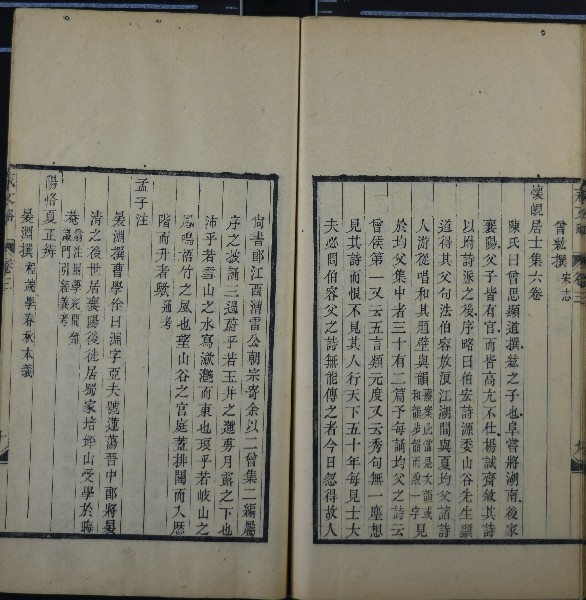 懷峴居士集六卷
曾紘撰宋志
陳氏曰曾思顯道撰紘之子也阜嘗將湖南後家
襄陽父子皆有官而皆高亢不仕楊誠齋敘其詩
以附詩派之後序略曰伯宏詩源委山谷先生顯
道得其父句法伯容放浪江湖間與夏均父諸詩
人游從唱和其題壁與韻
於均父集中者三十有二篇予每誦均父之詩云
曾侯第一又云五言類元度又云秀句無一塵想
見其詩而恨不見其人行天下五十年每見士大
夫必問伯容父之詩無能傳之者今日忽得故人
尚書郎江西漕雷公朝宗寄余以二曾集二編屬
序之故誦三過蔚乎若玉井之蓮月露之下也
沛乎若雪山之水寫灩而東也琅乎若岐山之
鳳鳴竹之風也望山谷之宮庭蓋排闥而入歷
階而升者歟通考
孟子注
晏淵撰曹學佺曰淵字亞夫號蓮蕩晉中郎將晏
清之後世居襄陽後徙居蜀家培坪山受學於晦
菴
藏門引經義考
陽恪夏正辨
晏淵撰程端學春秋本義